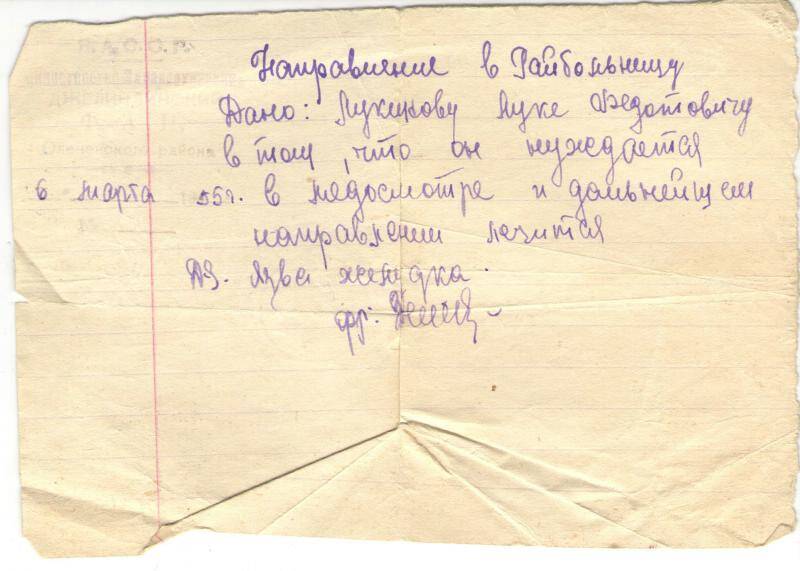 Я.А.С.С.Р.
района
Направление в Райбольницу
Дано: Луке Федотовичу
в том, что он нуждается
6 марта 55г. в медосмотре и дальнейшем
направлении лечится
ДЗ. Язва желудка.
фр: